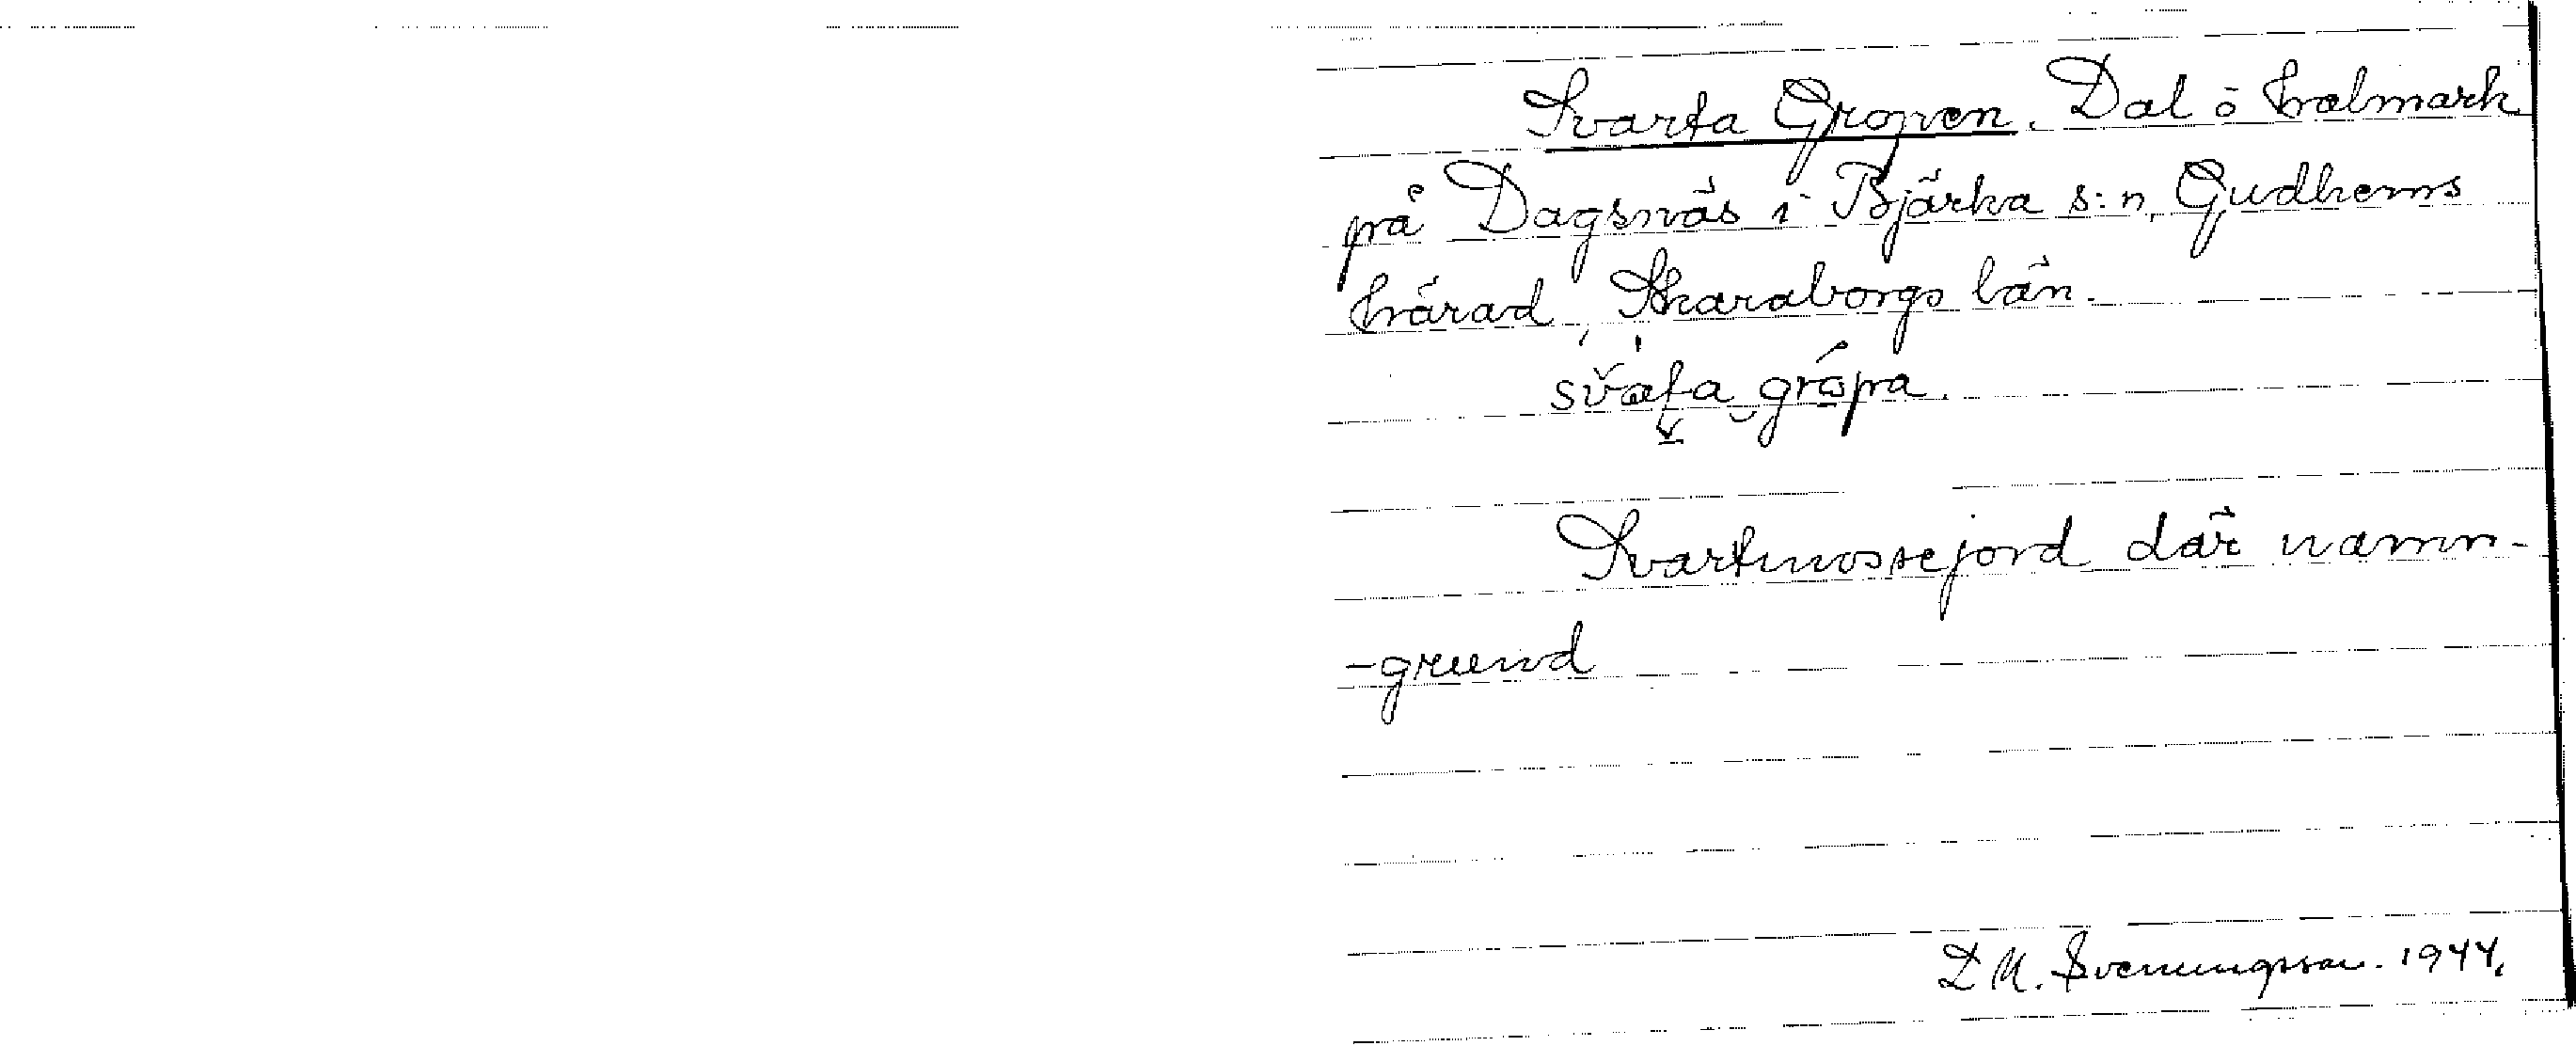 Svarta Gropen. Dal ö hvalmark
på Dagsnäs i Bjärka s:n, Gudhems
härad, Skaraborgs län.
Svartmossejord där namn-
-grund
D M. Svenungsson. 1944.